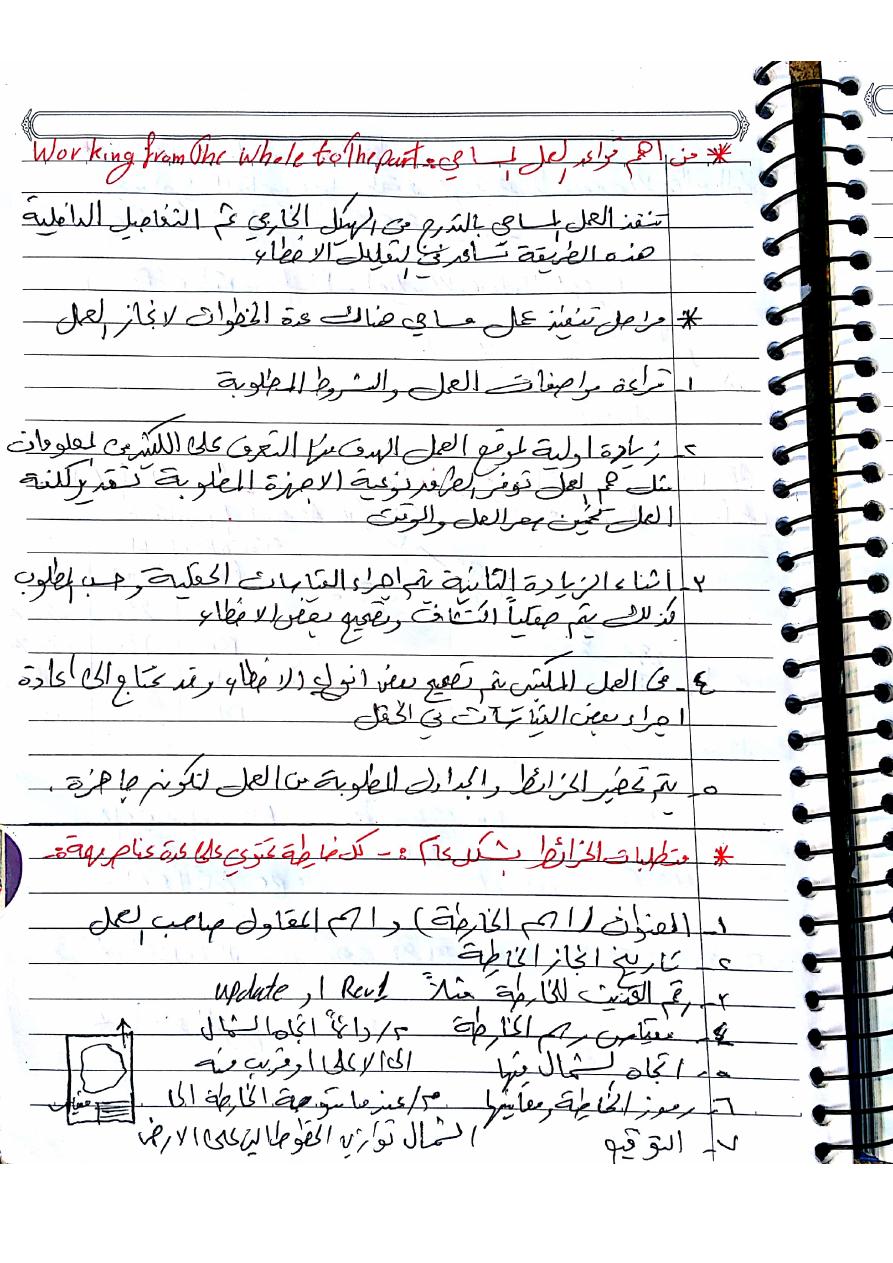 * من اهم قواعد العمل المساحي: Working from the whole to the part
تنفذ العمل المساحي بالتدرج من الهيكل الخارجي ثم التفاصيل الداخلية
هذه الطريقة تساعد في تقليل الاخطاء
* مراحل تنفيذ عمل مساحي هناك عدة الخطوات لانجاز العمل
١- قراءة مواصفات العمل والشروط المطلوبة
٢- زيادة اولية لموقع العمل الهدف منها التعرف على الكثير من المعلومات
مثل حجم العمل توفر نوعية الاجهزة المطلوبة تقدير كلفة
العمل تخمين سعر العمل والوقت
٣- أثناء الزيادة الثانية يتم اجراء القياسات الحقلية وحسب المطلوب
كذلك يتم حقلياً اكتشاف وتصحيح بعض الاخطاء
٤- في العمل المكتبي يتم تصحيح بعض انواع الاخطاء وقد يحتاج الى اعادة
اجراء بعض القياسات في الحقل
٥- يتم تحضير الخرائط والجداول المطلوبة من العمل لتكون جاهزة .
* متطلبات الخرائط بشكل عام :- كل خارطة تحتوي على عدة عناصر مهمة:-
١- العنوان (اسم الخارطة) واسم المقاول صاحب العمل
٢- تاريخ انجاز الخارطة
٣- رقم التحديث للخارطة مثلاً Rev1 او update
٤- مقياس رسم الخارطة
٥- اتجاه الشمال فيها
٦- رموز الخارطة ومعانيها
٧- التوقيع
م/ دائماً اتجاه الشمال
الى الاعلى او قريب منه
م/ عندما نتوجه الخارطة الى
الشمال توازي الخطوط التي على الارض
مقياس